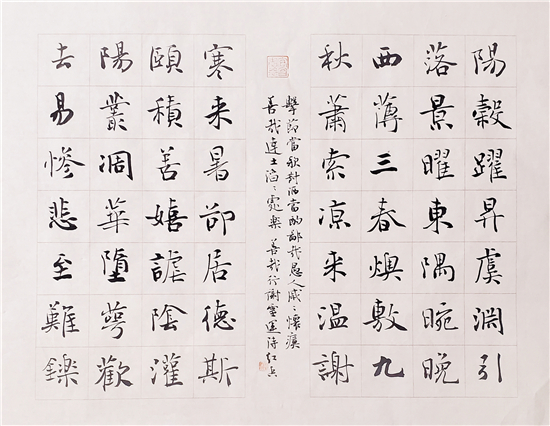 陽穀躍昇虞淵引
落景曜東隅晼晚
西薄三春燠敷九
秋蕭索涼来温謝
寒来暑卻居德斯
頤積善嬉謔陰灌
陽叢凋華墮萼歡
去易慘悲至難鑠
擊節當歌對酒當酌鄙哉愚人戚〻懷瘼
善哉達士滔〻處樂 善哉行謝靈運詩紅兵